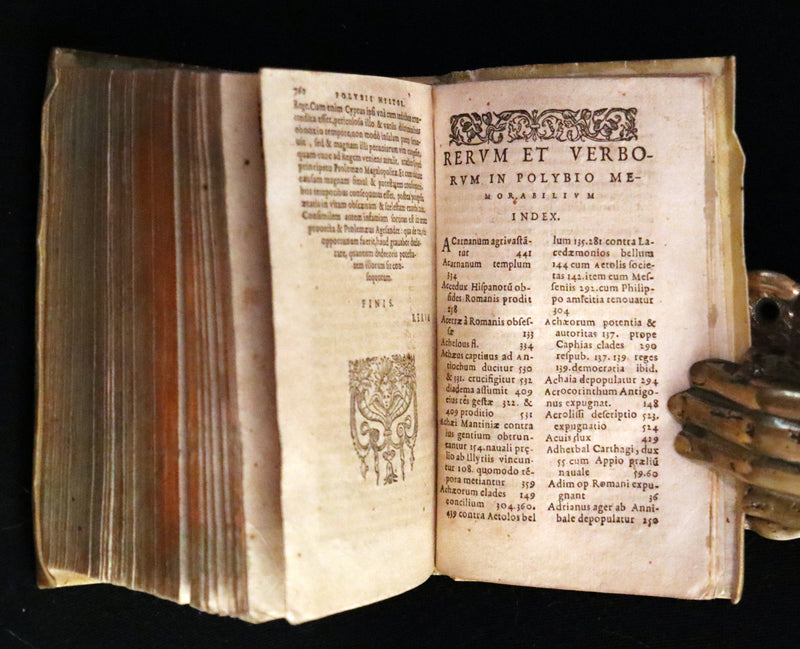 762 POLYBII HISTOR.
Rege. Cum enim Cyprus ipsi
esset, periculosa illo & variis
tempore, non modò
sed & magnam illi pecuniarum vim
quam cum ad Regem veniens
principatu Ptolemæo Megalopolita. Et
causam magnam simul &
temporibus consequutus esset, postea
ætatis in vitam obscœnam &
Consimilem autem infamiam
prouecta & Ptolemæus Agesander: qui
opportunum fuerit, haud grauabor
care, quantum dedecoris
tem illorum sit
sequutum.
FINIS.
RERVM ET VERBO-
RVM IN POLYBIO ME-
MORABILIVM
INDEX.
ACarnanum agri vastã-
tur 441
Acarnanum templum
334
Accedux Hispanotũ ob-
sides Romanis prodit
238
Acerræ à Romanis obses-
sæ 133
Achelous fl. 334
Achæus captiuus ad An-
tiochum ducitur 530
& 531. crucifigitur 532
diadema assumit 409
eius rès gestæ 322. &
409 proditio 531
Achæi Mantiniæ contra
ius gentium obtrun-
cantur 154. nauali prę-
lio ab Illyriis vincun-
tur 108. quomodo tẽ-
pora metiantur 359
Achæorum clades 149
concilium 304.360.
439 contra Aetolos bel
lum 135.281 contra La-
cedæmonios bellum
144 cum Aetolis socie-
tas 142. item cum Mes-
seniis 292. cum Philip-
po amicitia renouatur
304
Achæorum potentia &
autoritas 137. prope
Caphias clades 290
respub. 137. 139. reges
139. democratia ibid.
Achaia depopulatur 294
Acrocorinthum Antigo-
nus expugnat. 148
Acrolissi descriptio 523.
expugnatio 524
Acuis flux 429
Adherbal Carthagi, dux
55 cum Appio præliũ
nauale 59.60
Adim op Romani expu-
gnant 36
Adrianus ager ab Anni-
bale depopulatur 250